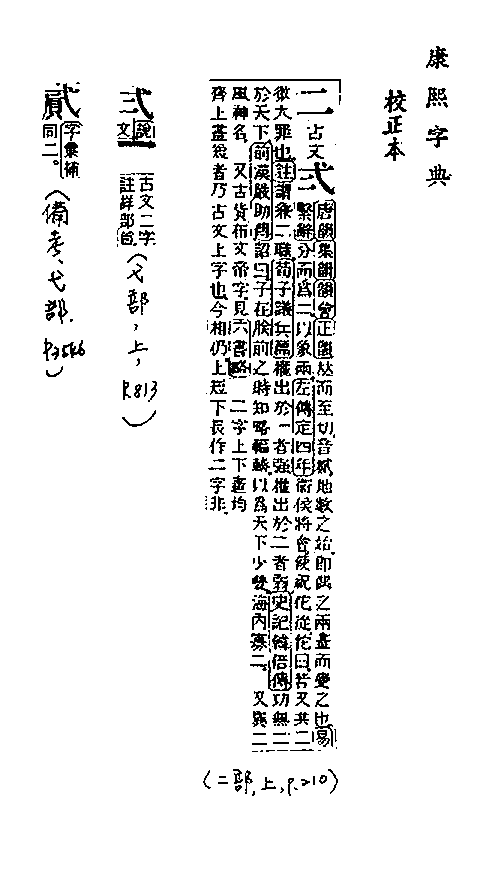 康熙字典
校正本
二 古文弍 唐韻集韻韻會正韻𠀤而至切音貳地數之始卽偶之兩畫而變之也易
繫辭分而爲二以象兩左傳定四年衞侯將會使祝佗從佗曰若又共二
徼大罪也註謂兼二職荀子議兵篇權出於一者强權出於二者弱史記韓信傳功無二
於天下前漢嚴助傳詔曰子在朕前之時知略輻輳以爲天下少雙海內寡二 又與二
風神名 又古貨布文帝字見六書略 二字上下畫均
齊上畫短者乃古文上字也今相仍上短下長作二字非
(二部,上,P.210)
弎 說文 古文二字註詳部首
(弋部,上,P.813)
貳 字彙補 同二。
(備考、弋部.P3546)